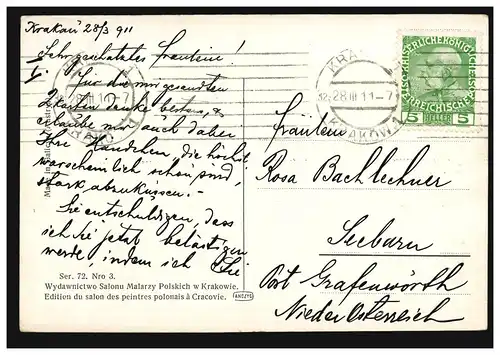 Krakau 28/3 911
Sehr geschätztes Fräulein!
Für die mir gesandten
2 Karten danke bestens, &
erlaube mir auch daher
Ihre Händchen die höchst
warscheinlich schön sind,
stark abzuküssen.-
Sie entschuldigen, dass
ich Sie jetzt belästigen
werde, indem ich Sie
Ser. 72. Nro 3.
Wydawnictwo Salonu Malarzy Polskich w Krakowie.
Edition du salon des peintres polonais à Cracovie.
ANCZYC
KRAKAU
28 III 11-7
KRAKÓW
KAISERLICHE KÖNIGLICHE
ÖSTERREICHISCHE
5 HELLER 5
Fräulein
Rosa Bachlechner
Seebarn
Post Grafenwörth
Nieder Österreich